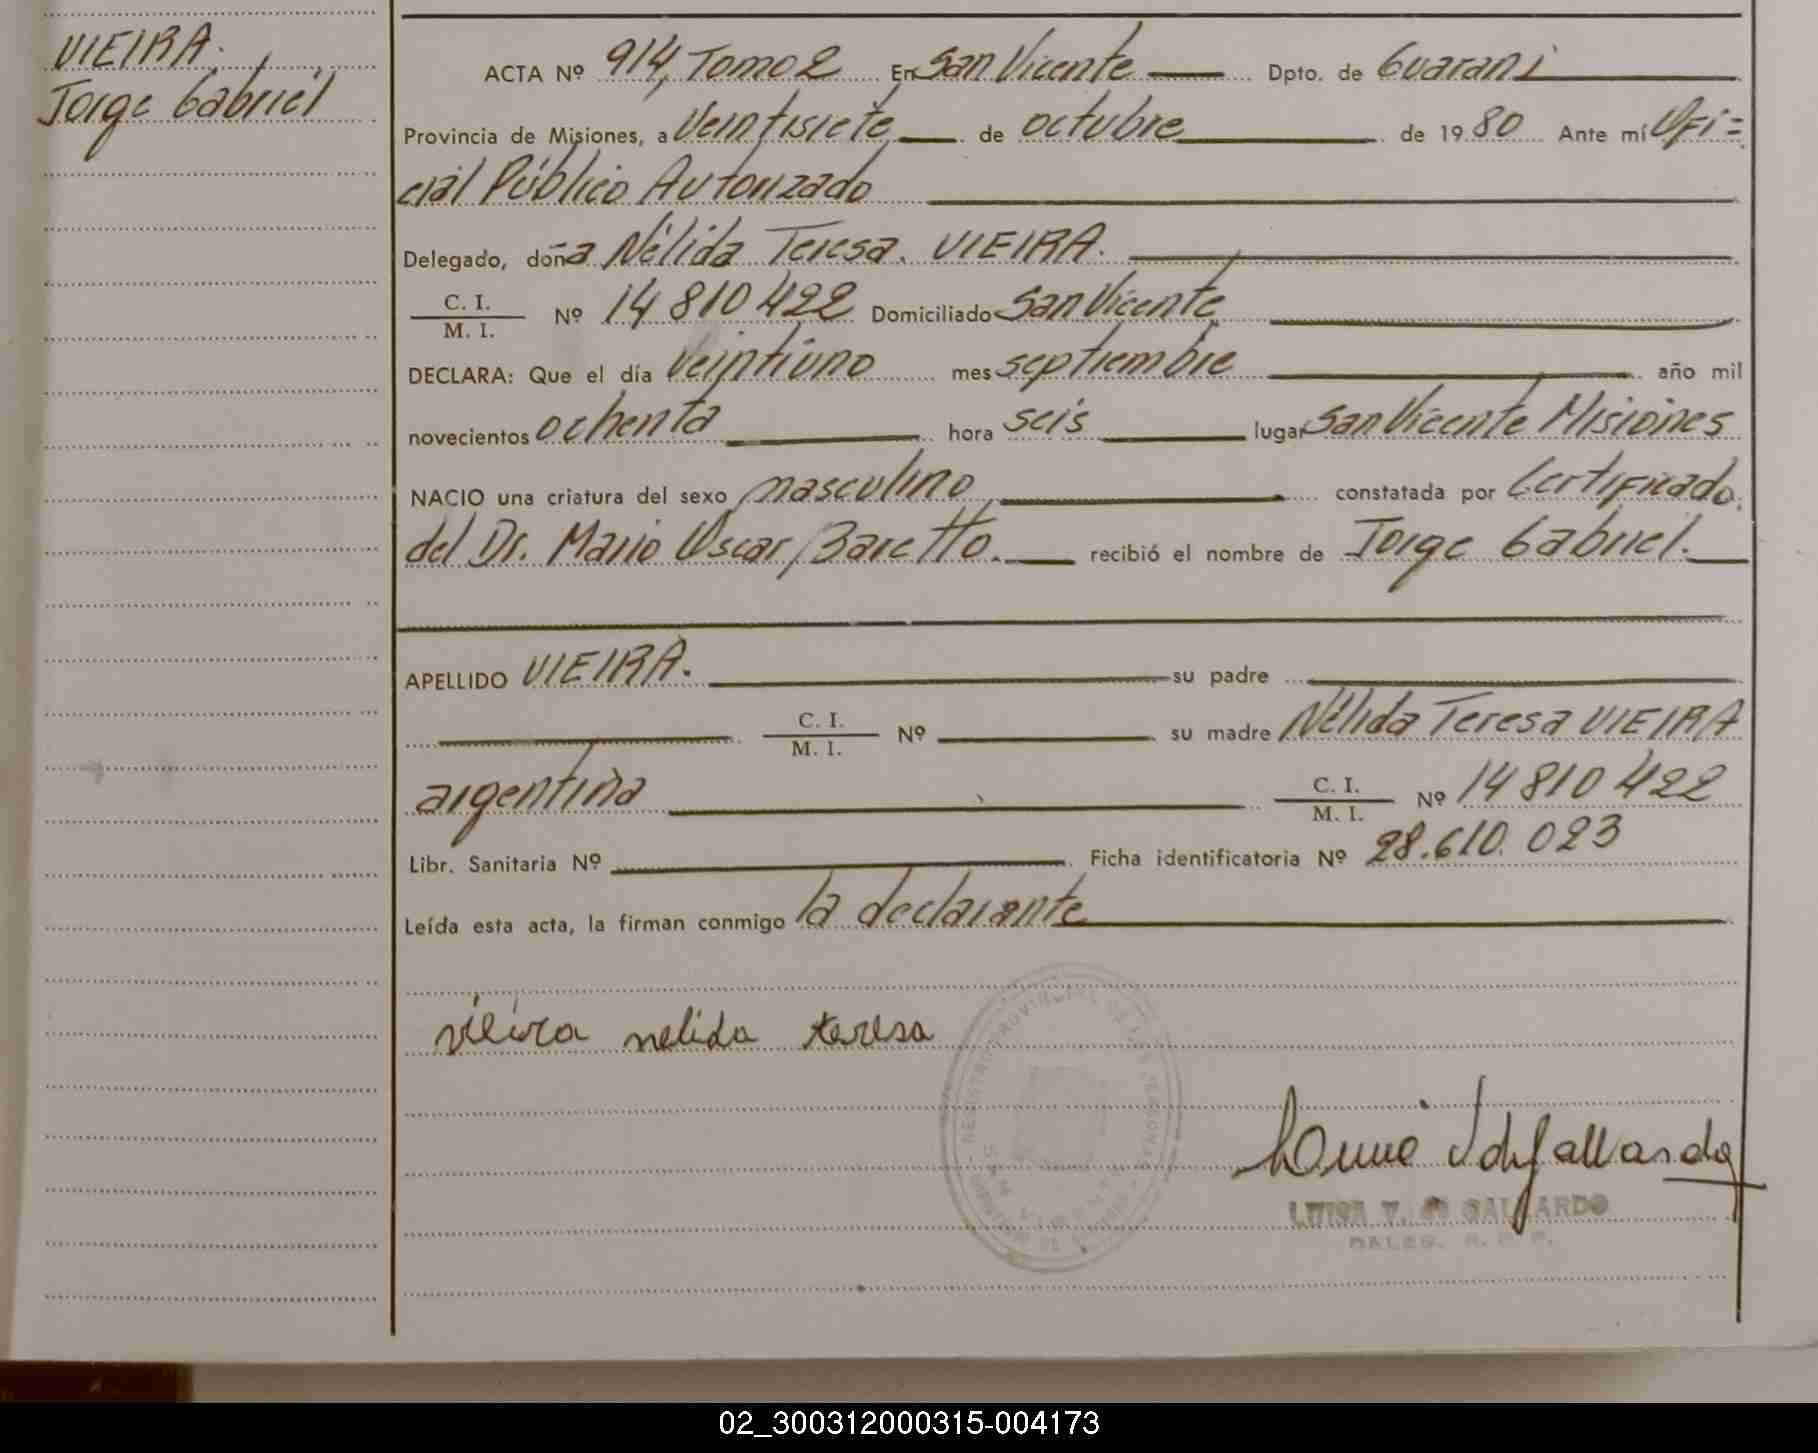 VIEIRA.
Jorge Gabriel
ACTA Nº 914, Tomo 2 En San Vicente Dpto. de Guaraní
Provincia de Misiones, a Veintisiete de octubre de 1980 Ante mí Ofi=
cial Público Autorizado
Delegado, doña Nélida Teresa. VIEIRA.
C. I.
M. I. Nº 14 810 422 Domiciliado San Vicente
DECLARA: Que el día veintiuno mes septiembre año mil
novecientos ochenta hora seis lugar San Vicente Misiones
NACIO una criatura del sexo masculino constatada por Certificado
del Dr. Mario Oscar Baretto. recibió el nombre de Jorge Gabriel.
APELLIDO VIEIRA. su padre
C. I.
M. I. Nº su madre Nélida Teresa VIEIRA
argentina C. I.
M. I. Nº 14 810 422
Libr. Sanitaria Nº Ficha identificatoria Nº 28.610.023
Leída esta acta, la firman conmigo la declarante
vieira nelida teresa
REGISTRO PROVINCIAL DE LAS PERSONAS
SAN VICENTE
LUISA V. de GALLARDO
02_300312000315-004173